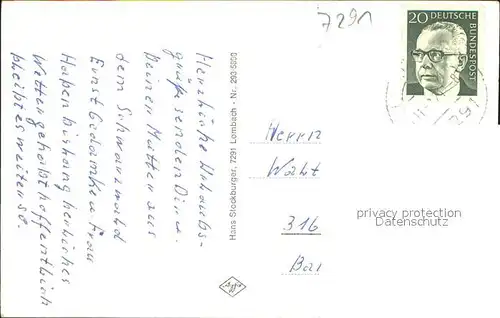 7291
20 DEUTSCHE
BUNDESPOST
Herzliche Urlaubs-
grüße senden Dir u.
Deinen Mutter aus
dem Schwarzwald
Ernst Frau
Haben bisher herrliches
Wetter gehabt hoffentlich
bleibt es weiter so.
Hans Stockburger, 7291 Lombach - Nr. 293
Herrn
316
privacy protection
Datenschutz